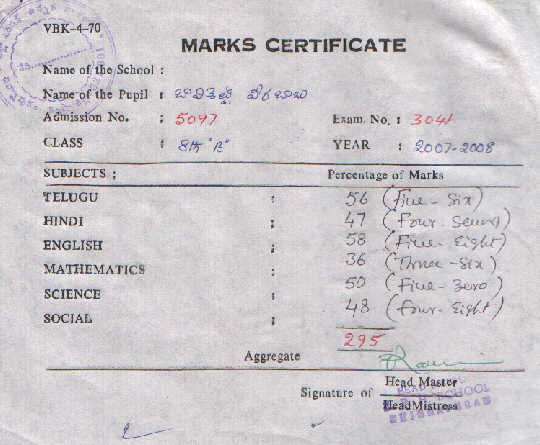 VBK-4-70
MARKS CERTIFICATE
Name of the School :
Name of the Pupil :
Admission No. : 5097 Exam. No. : 3041
CLASS : 8th "A" YEAR : 2007-2008
SUBJECTS : Percentage of Marks
TELUGU : 56 (Five - Six)
HINDI : 47 (Four - Seven)
ENGLISH : 58 (Five - Eight)
MATHEMATICS : 36 (Three - Six)
SCIENCE : 50 (Five - Zero)
SOCIAL : 48 (Four - Eight)
295
Aggregate
Signature of Head Master
Head Mistress